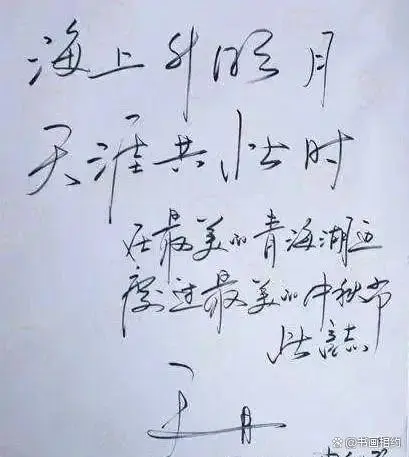 海上升明月
天涯共此时
在最美的青海湖边
度过最美的中秋节
此
@书画相约